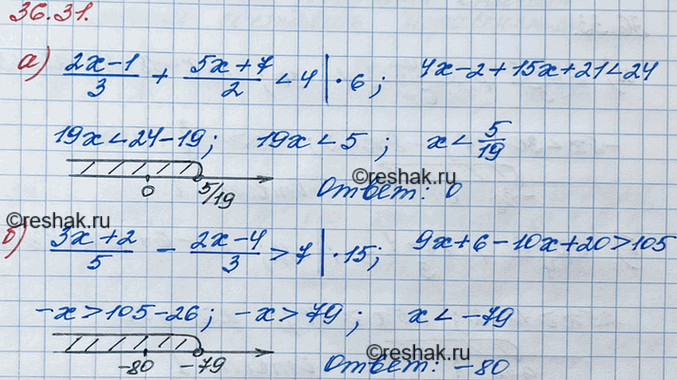 36.31.
а) (2x-1)/3 + (5x+7)/2 < 4 | · 6; 4x-2+15x+21<24
19x<24-19; 19x<5; x<5/19
0 5/19 Ответ: 0
©reshak.ru
©reshak.ru
б) (3x+2)/5 - (2x-4)/3 > 7 | · 15; 9x+6-10x+20>105
-x>105-26; -x>79; x<-79
-80 -79 Ответ: -80
©reshak.ru